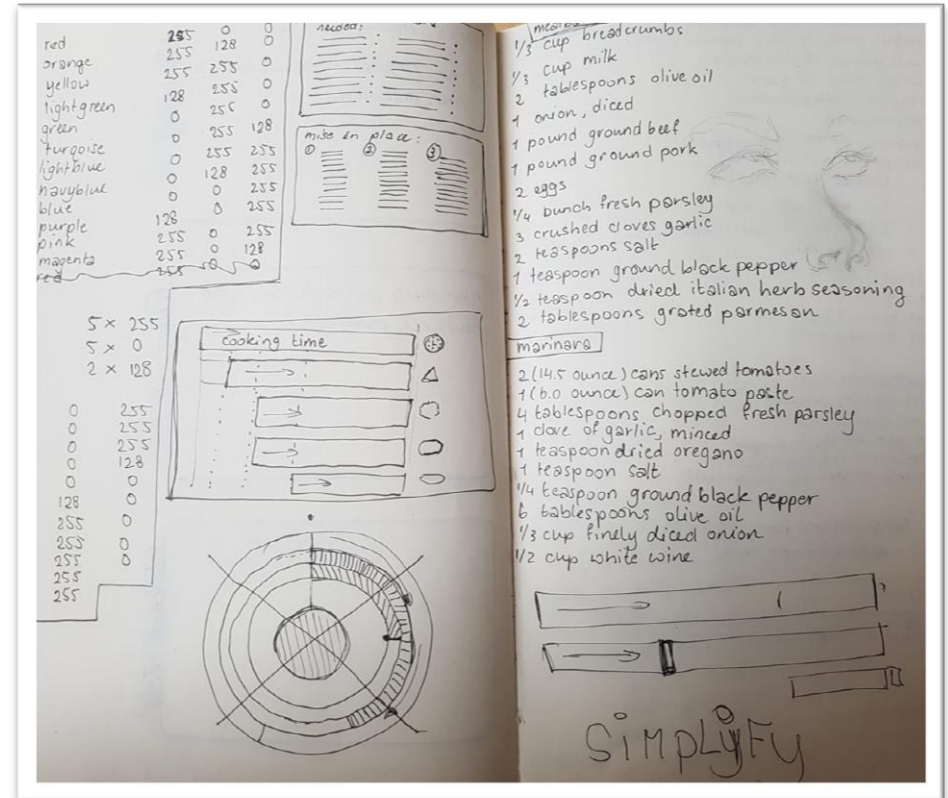 red 255 0 0
orange 255 128 0
yellow 255 255 0
lightgreen 128 255 0
green 0 255 0
turqoise 0 255 128
lightblue 0 255 255
navyblue 0 128 255
blue 0 0 255
purple 128 0 255
pink 255 0 255
magenta 255 0 128
red 255 0 0
5 x 255
5 x 0
2 x 128
0 255
0 255
0 255
0 128
0 0
128 0
255 0
255 0
255 0
255
255
needed:
mise en place:
1 2 3
cooking time
1/3 cup breadcrumbs
1/3 cup milk
2 tablespoons olive oil
1 onion, diced
1 pound ground beef
1 pound ground pork
2 eggs
1/4 bunch fresh parsley
3 crushed cloves garlic
2 teaspoons salt
1 teaspoon ground black pepper
1/2 teaspoon dried italian herb seasoning
2 tablespoons grated parmesan
marinara
2 (14.5 ounce) cans stewed tomatoes
1 (6.0 ounce) can tomato paste
4 tablespoons chopped fresh parsley
1 clove of garlic, minced
1 teaspoon dried oregano
1 teaspoon salt
1/4 teaspoon ground black pepper
6 tablespoons olive oil
1/3 cup finely diced onion
1/2 cup white wine
SiMPLyFy